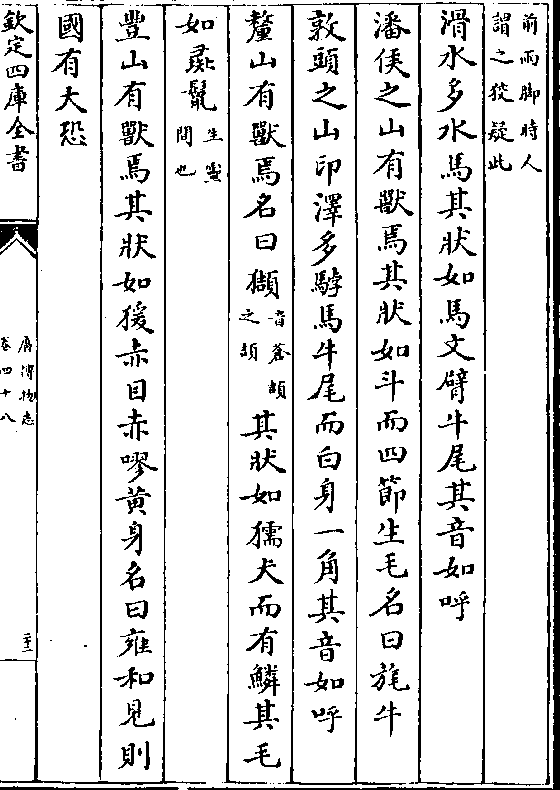 前兩脚時人
謂之狡疑此
滑水多水馬其狀如馬文臂牛尾其音如呼
潘侯之山有獸焉其狀如斗而四節生毛名曰旄牛
敦頭之山印澤多䮀馬牛尾而白身一角其音如呼
釐山有獸焉名曰獺音蒼頡之頡其狀如獳犬而有鱗其毛
如彘鬛生鱗間也
豐山有獸焉其狀如猨赤目赤嘐黄身名曰雍和見則
國有大恐
欽定四庫全書
廣博物志
卷四十八